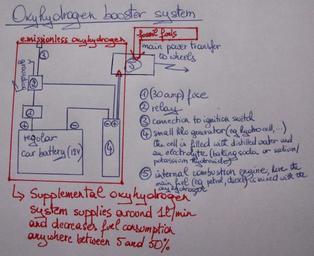 Oxyhydrogen booster system
emissionless oxyhydrogen
fossil fuels
main power transfer
to wheels
3
5
2
1
regular
car battery (12V)
4
① (30 amp) fuse
② relay
③ connection to ignition switch
④ small HHO generator (eg hydrocell,...)
the cell is filled with distilled water and
an electrolyte (baking soda, or natrium/
potassium hydroxide)
⑤ internal combustion engine, here the
main fuel (eg petrol, diesel) is mixed with the
oxyhydrogen
↳ Supplemental oxyhydrogen
system supplies around 1l/min
and decreases fuel consumption
anywhere between 5 and 50%